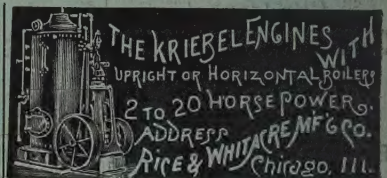 THE KRIEBEL ENGINES
WITH
UPRIGHT OR HORIZONTAL BOILERS
2 TO 20 HORSE POWER.
ADDRESS
RICE & WHITACRE MF'G CO.
Chicago, Ill.